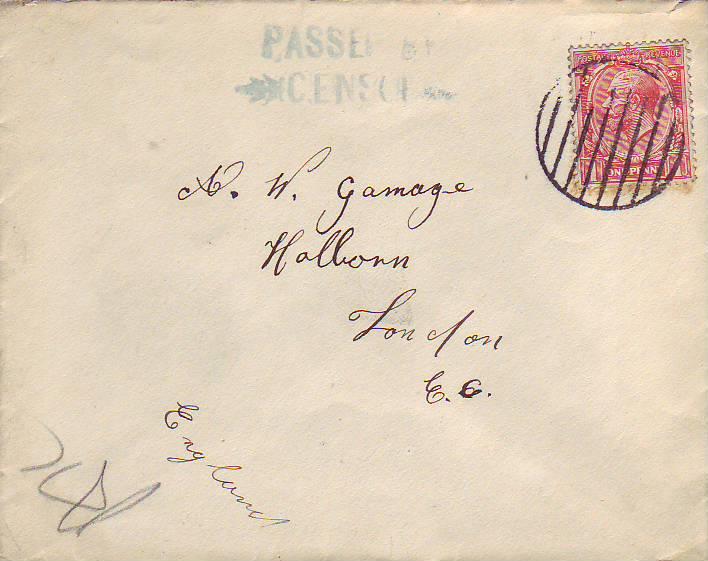 PASSED BY
CENSOR
POSTAGE REVENUE
ONE PENNY
A. W. Gamage
Holborn
London
E.C.
England